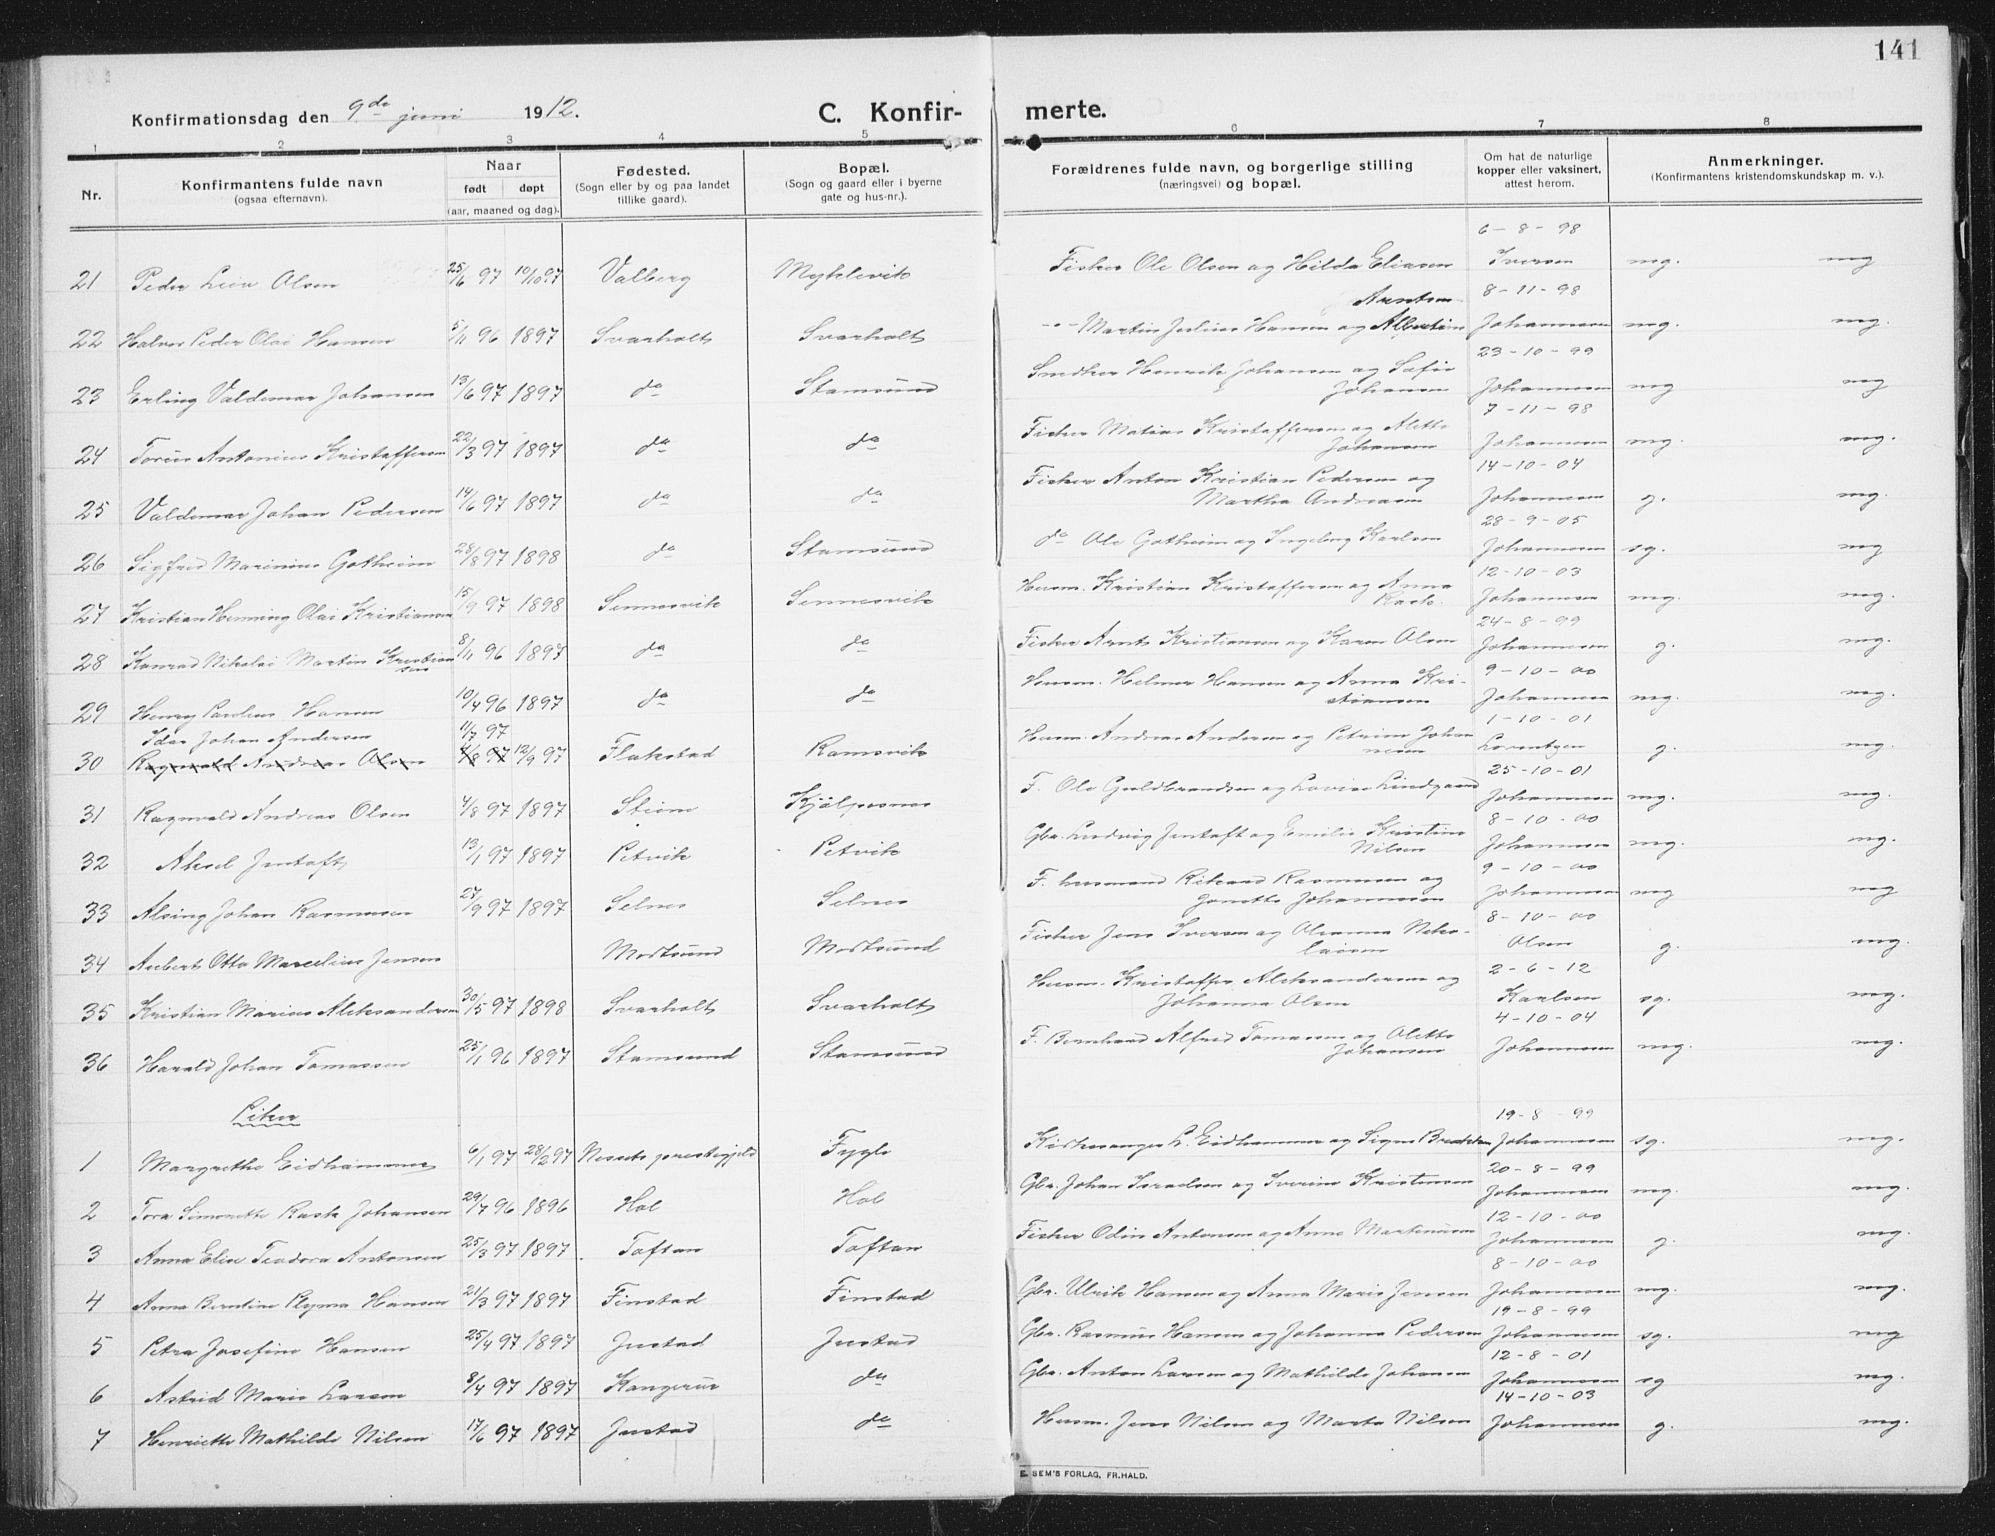 141
Konfirmationsdag den 9de juni 1912. C. Konfir- merte.
1 2 3 4 5 6 7 8
Nr. Konfirmantens fulde navn (ogsaa efternavn). Naar født døpt (aar, maaned og dag). Fødested. (Sogn eller by og paa landet tillike gaard). Bopæl. (Sogn og gaard eller i byerne gate og hus-nr.). Forældrenes fulde navn, og borgerlige stilling (næringsvei) og bopæl. Om hat de naturlige kopper eller vaksinert, attest herom. Anmerkninger. (Konfirmantens kristendomskundskap m. v.).
21 Peder Leiv Olsen 25/6 97 10/10 97 Valberg Myklevik Fisker Ole Olsen og Hilda Eliasen 6-8-98 Iversen mg. mg
22 Halvor Peder Olai Hansen 5/11 96 1897 Svarholt Svarholt -"- Martin Julius Hansen og Albertine Arntsen 8-11-98 Johannesen mg. mg.
23 Erling Valdemar Johansen 13/6 97 1897 do Stamsund Smedker Henrik Johansen og Sofie Johansen 23-10-99 Johannesen mg mg
24 Torius Antonius Kristoffersen 22/3 97 1897 do do Fisker Matias Kristoffersen og Aletta Johansen 7-11-98 Johannesen mg. mg.
25 Valdemar Johan Pedersen 14/6 97 1897 do do Fisker Anton Kristian Pedersen og Martha Andreasen 14-10-04 Johannesen g. mg.
26 Sigfred Marinius Gotheim 28/8 97 1898 do Stamsund do Ole Gotheim og Ingeborg Karlsen 28-9-05 Johannesen sg. mg
27 Kristian Henning Olai Kristiansen 15/9 97 1898 Sennesvik Sennesvik Husm. Kristian Kristoffersen og Anna Rask. 12-10-03 Johannesen mg. mg.
28 Konrad Nikolai Martin Kristiansen 8/11 96 1897 do do Fisker Arnt Kristiansen og Karen Olsen 24-8-99 Johannesen g. mg.
29 Henry Paulus Hansen 10/4 96 1897 do do Husm. Helmer Hansen og Anna Kristiansen 9-10-00 Johannesen mg. mg.
Idar Johan Andersen 11/7 97
30 Ragnvald Andreas Olsen 4/8 97 12/9 97 Flakstad Ramsvik Husm. Andreas Andersen og Petrine Johannesen 1-10-01 Lorentzen g. mg.
31 Ragnvald Andreas Olsen 4/8 97 1897 Steine Kjølpesnes F. Ole Guldbrandsen og Lovise Lindgaard 25-10-01 Johannesen mg. mg.
32 Aksel Jentoft 13/1 97 1897 Petvik Petvik Gbr. Ludvig Jentoft og Emilie Kristine Nilsen 8-10-00 Johannesen mg. mg.
33 Alsing Johan Rasmussen 27/9 97 1897 Selnes Selnes F. husmand Rikard Rasmussen og Jonette Johannesen 9-10-00 Johannesen mg mg
34 Aubert Otto Marselius Jensen Mortsund Mortsund Fisker Jens Iversen og Olianna Nikolaisen 8-10-00 Olsen g. mg.
35 Kristian Marius Aleksandersen 30/5 97 1898 Svarholt Svarholt Husm. Kristoffer Aleksandersen og Johanna Olsen 2-6-12 Karlsen sg. mg.
36 Harald Johan Tomassen 25/1 96 1897 Stamsund Stamsund F. Bernhard Alfred Tomassen og Oletta Johansen 4-10-04 Johannesen mg. mg.
Piker
1 Margrethe Eidhammer 6/1 97 28/2 97 Nessets prestegjeld Fygle Kirkesanger L. Eidhammer og Signe Brekken 19-8-99 Johannesen sg. mg.
2 Tora Simonette Rask Johansen 29/7 96 1896 Hol Hol Gbr. Johan Israelsen og Sverine Kristensen 20-8-99 Johannesen mg. mg.
3 Anna Elise Teodora Antonsen 25/3 97 1897 Toftan Toftan Fisker Odin Antonsen og Anne Martinusen 12-10-00 Johannesen g. mg.
4 Anna Berntine Plyma Hansen 21/3 97 1897 Finstad Finstad Gbr. Ulrik Hansen og Anna Marie Jensen 8-10-00 Johannesen mg. mg.
5 Petra Josefine Hansen 25/4 97 1897 Justad Justad Gbr. Rasmus Hansen og Johanna Pedersen 19-8-99 Johannesen sg. mg
6 Astrid Marie Larsen 8/4 97 1897 Kangerur do Gbr. Anton Larsen og Mathilde Johansen 12-8-01 Johannesen sg mg.
7 Henriette Mathilde Nilsen 17/6 97 1897 Justad do Husm. Jens Nilsen og Marta Nilsen 14-10-03 Johannesen g. mg.
E. SEM'S FORLAG, FR.HALD.